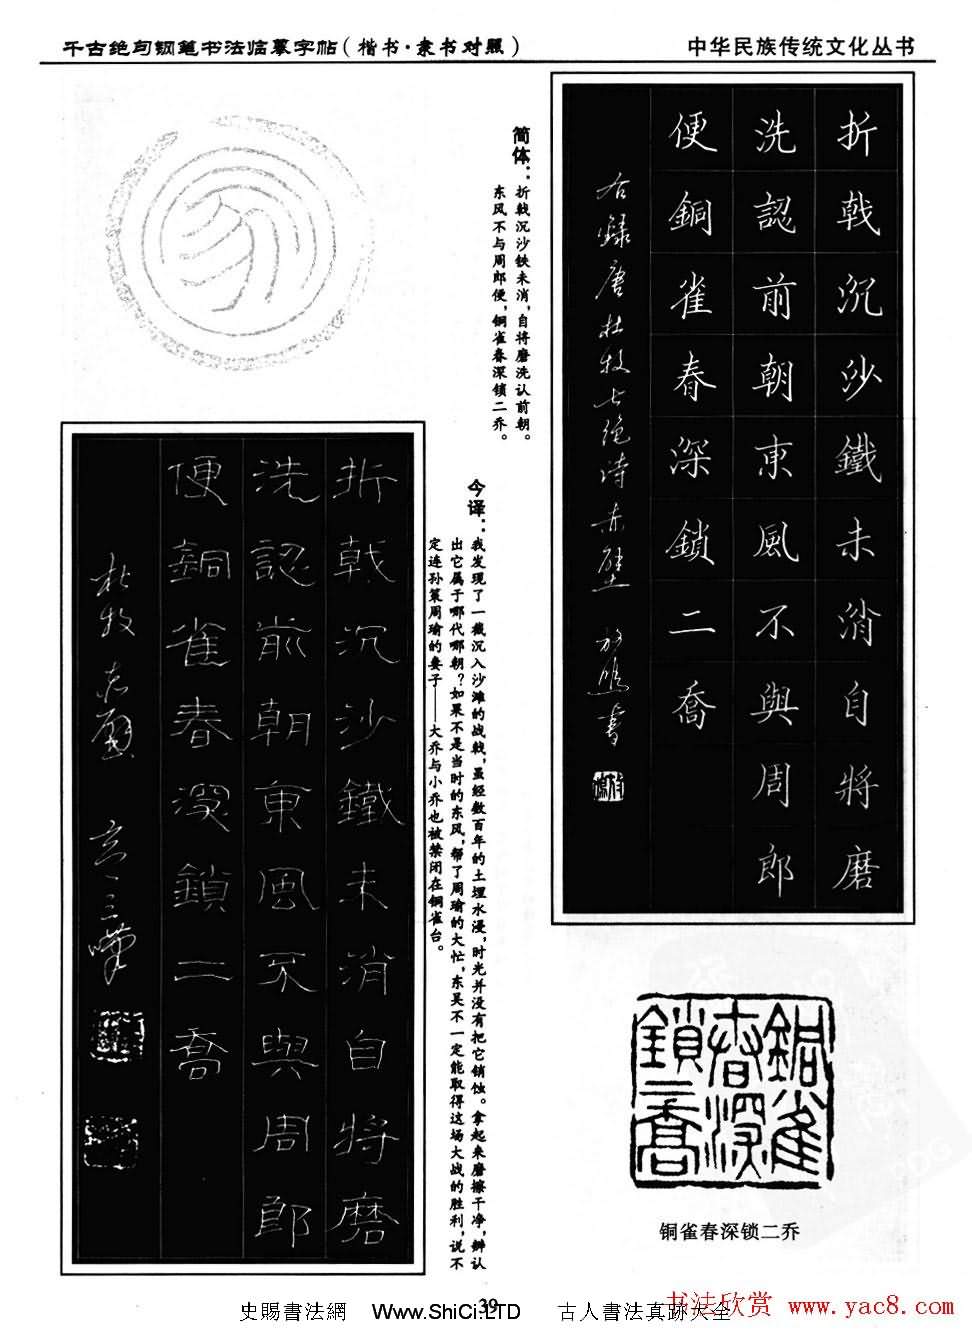 千古绝句钢笔书法临摹字帖（楷书·隶书对照）
中华民族传统文化丛书
折戟沉沙鐵未消自將磨
洗認前朝東風不與周郎
便銅雀春深鎖二喬
右録唐杜牧七绝诗赤壁
简体：折戟沉沙铁未消，自将磨洗认前朝。
东风不与周郎便，铜雀春深锁二乔。
今译：我发现了一截沉入沙滩的战戟，虽经数百年的土埋水浸，时光并没有把它销蚀。拿起来磨擦干净，辨认
出它属于哪代哪朝？如果不是当时的东风，帮了周瑜的大忙，东吴不一定能取得这场大战的胜利，说不
定连孙策周瑜的妻子——大乔与小乔也被禁闭在铜雀台。
折戟沉沙鐵未消自將磨
洗認前朝東風不與周郎
便銅雀春深鎖二喬
杜牧赤壁
銅雀
春深
鎖二喬
铜雀春深锁二乔
39
史賜書法網 Www.ShiCi.LTD 古人書法真跡大全
书法欣赏 www.yac8.com